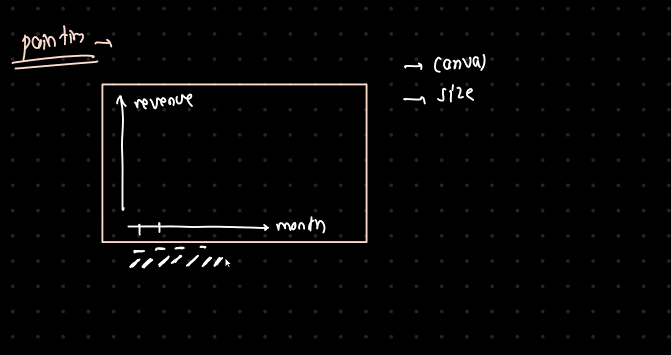 pointm →
→ canva)
→ size
revenue
month